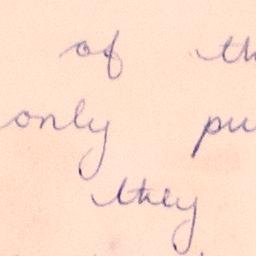 of th
only pu
they